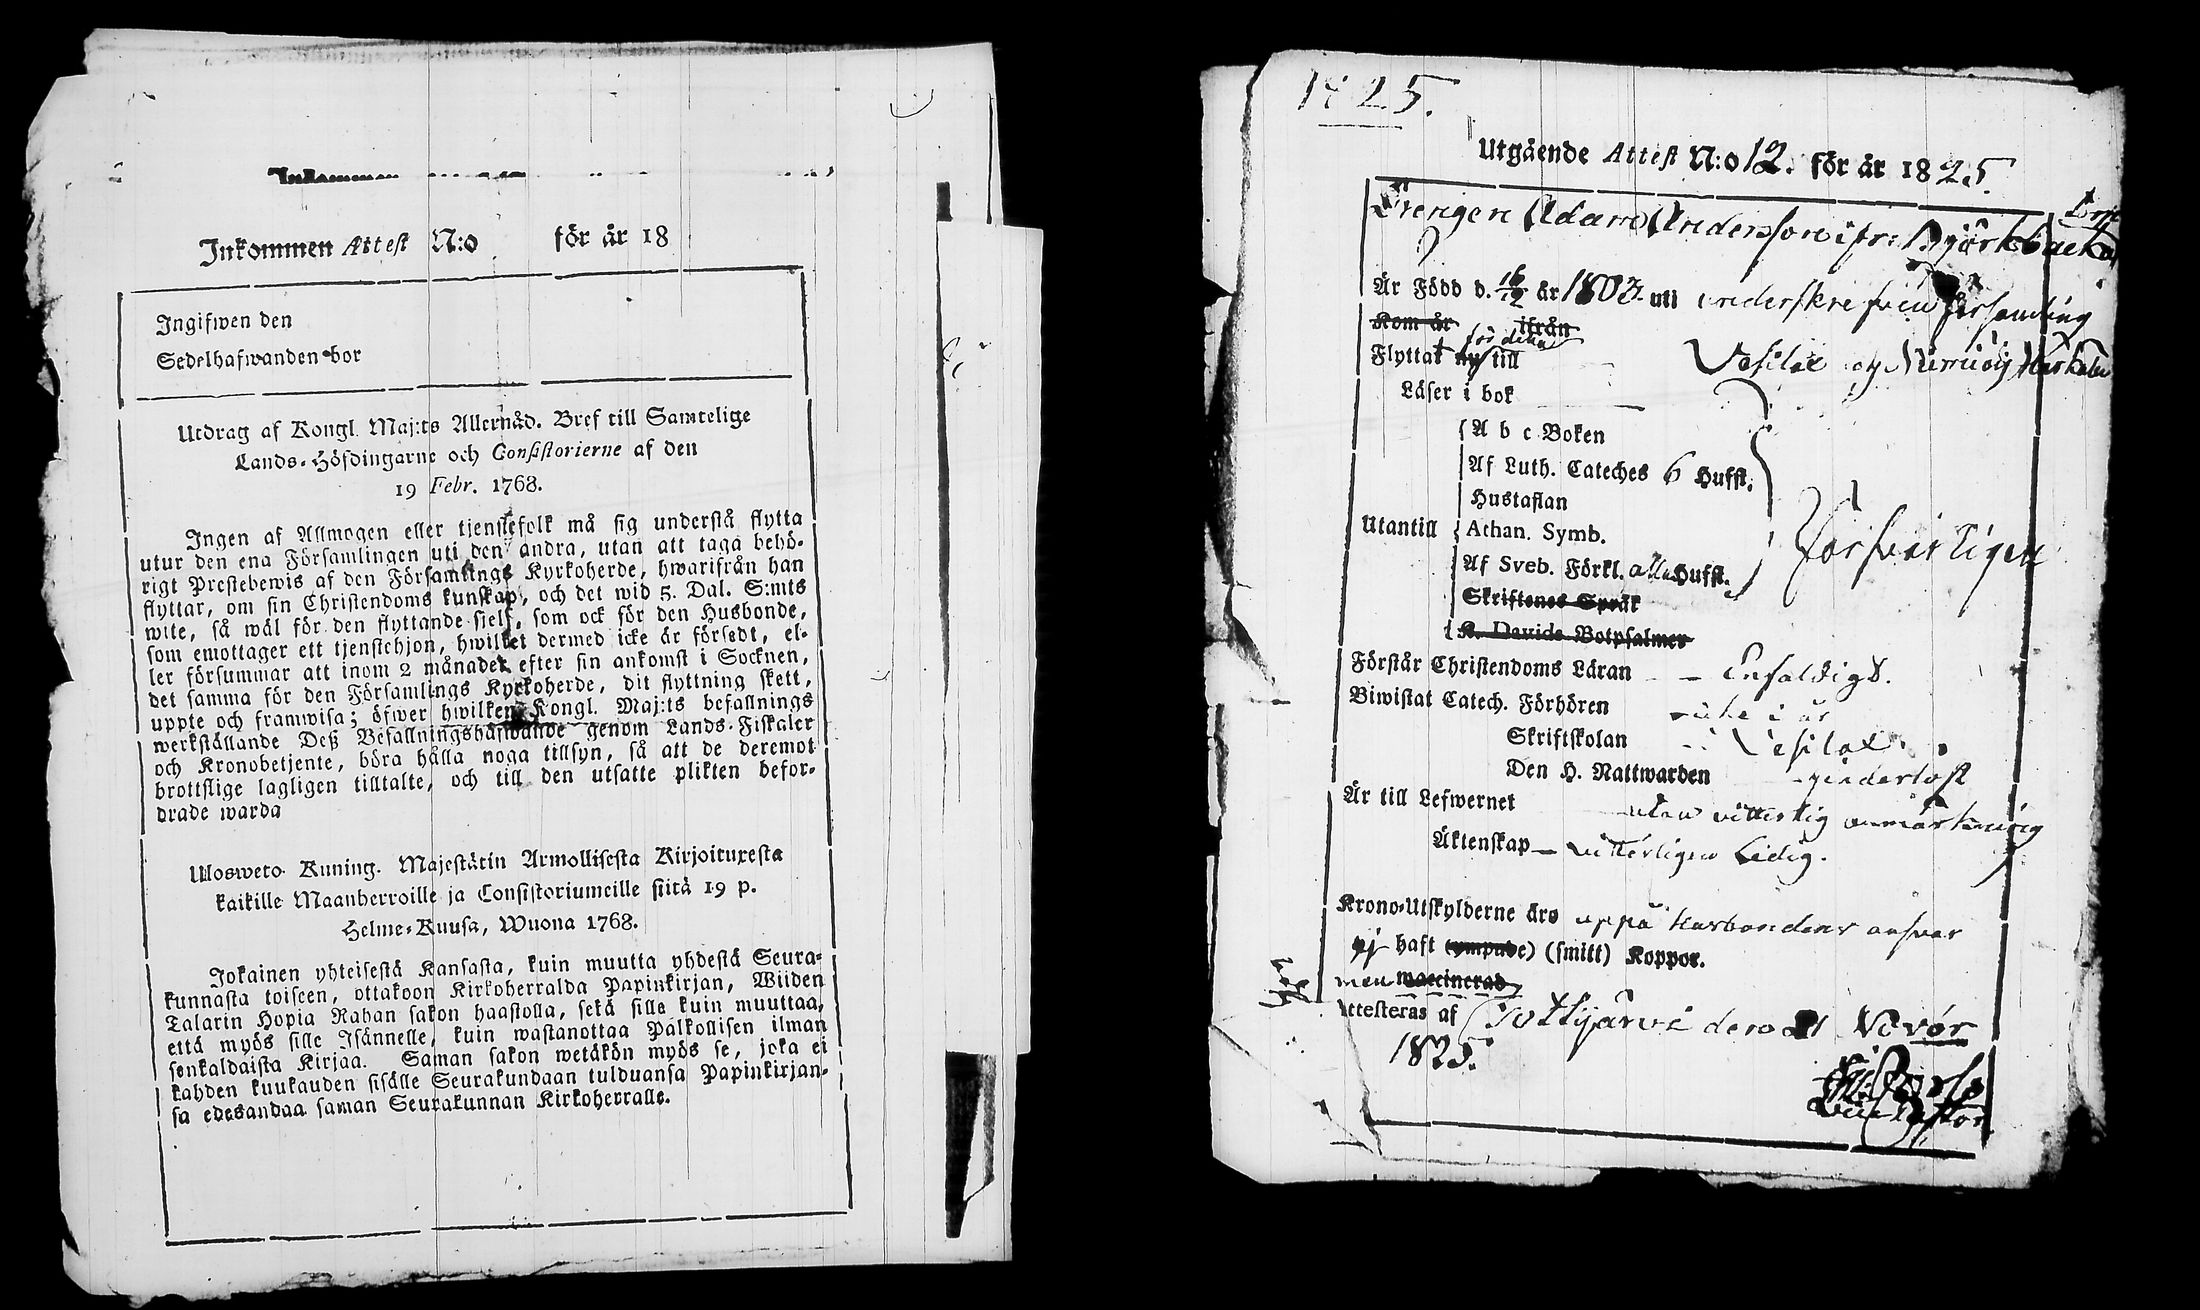 Inkommen
Inkommen Attest N:o för år 18
Ingifwen den
Sedelhafwanden bor
Utdrag af Kongl. Maj:ts Allernåd. Bref till Samtelige
Lands-Höfdingarne och Consistorierne af den
19 Febr. 1768.
Ingen af Allmogen eller tjenstefolk må sig understå flytta
utur den ena Församlingen uti den andra, utan att taga behö-
rigt Prestebewis af den Församlings Kyrkoherde, hwarifrån han
flyttar, om sin Christendoms kunskap, och det wid 5. Dal. S:mts
wite, så wäl för den flyttande sjelf, som ock för den Husbonde,
som emottager ett tjenstehjon, hwilket dermed icke är försedt, el-
ler försummar att inom 2 månader efter sin ankomst i Socknen,
det samma för den Församlings Kyrkoherde, dit flyttning skett,
uppte och framwisa; öfwer hwilken Kongl. Maj:ts befallnings
werkställande Deß Befallningshafwande genom Lands-Fiskaler
och Kronobetjente, böra hålla noga tillsyn, så att de deremot
brottslige lagligen tilltalte, och till den utsatte plikten befor-
drade warda
Ulosweto Kuning. Majestätin Armollisesta Kirjoituxesta
kaikille Maanherroille ja Consistoriumeille siitä 19 p.
Helme-Kuusa, Wuona 1768.
Jokainen yhteisestä Kansasta, kuin muutta yhdestä Seura-
kunnasta toiseen, ottakoon Kirkoherralda Papinkirjan, Wiiden
Talarin Hopia Rahan sakon haastolla, sekä sille kuin muuttaa,
että myös sille Isännelle, kuin wastanottaa Palkollisen ilman
senkaldaista Kirjaa. Saman sakon wetäkön myös se, joka ei
kahden kuukauden sisälle Seurakundaan tulduansa Papinkirjan-
sa edesandaa saman Seurakunnan Kirkoherralle.
1825.
Utgående Attest N:o 12. för år 1825.
Drengen Adam Andersson ifr: Björkbacka
Är Född d. 16/12 år 1803. uti underskrefven församling
Kom år ifrån
Flyttat nu till Vesilax och Nurmi
Läser i bok
A b c Boken
Af Luth. Cateches 6 Hufst.
Hustaflan
Utantill Athan. Symb. Försvarligen
Af Sveb. Förkl. alla Hufst.
Skriftenes Språk
K. Davids Botpsalmer
Förstår Christendoms Läran Enfaldigt.
Biwistat Catech. Förhören icke i år
Skriftskolan i Vesilax
Den H. Nattwarden
Är till Lefwernet utan vitterlig anmärkning
Äktenskap vitterligen Ledig.
Krono-Utskylderne äro uppå Husbondens ansvar
ej haft (ympade) (smitt) Koppor.
men waccinerad
Attesteras af Tottijärvi den 21 Novbr
1825.
Vice Pastor